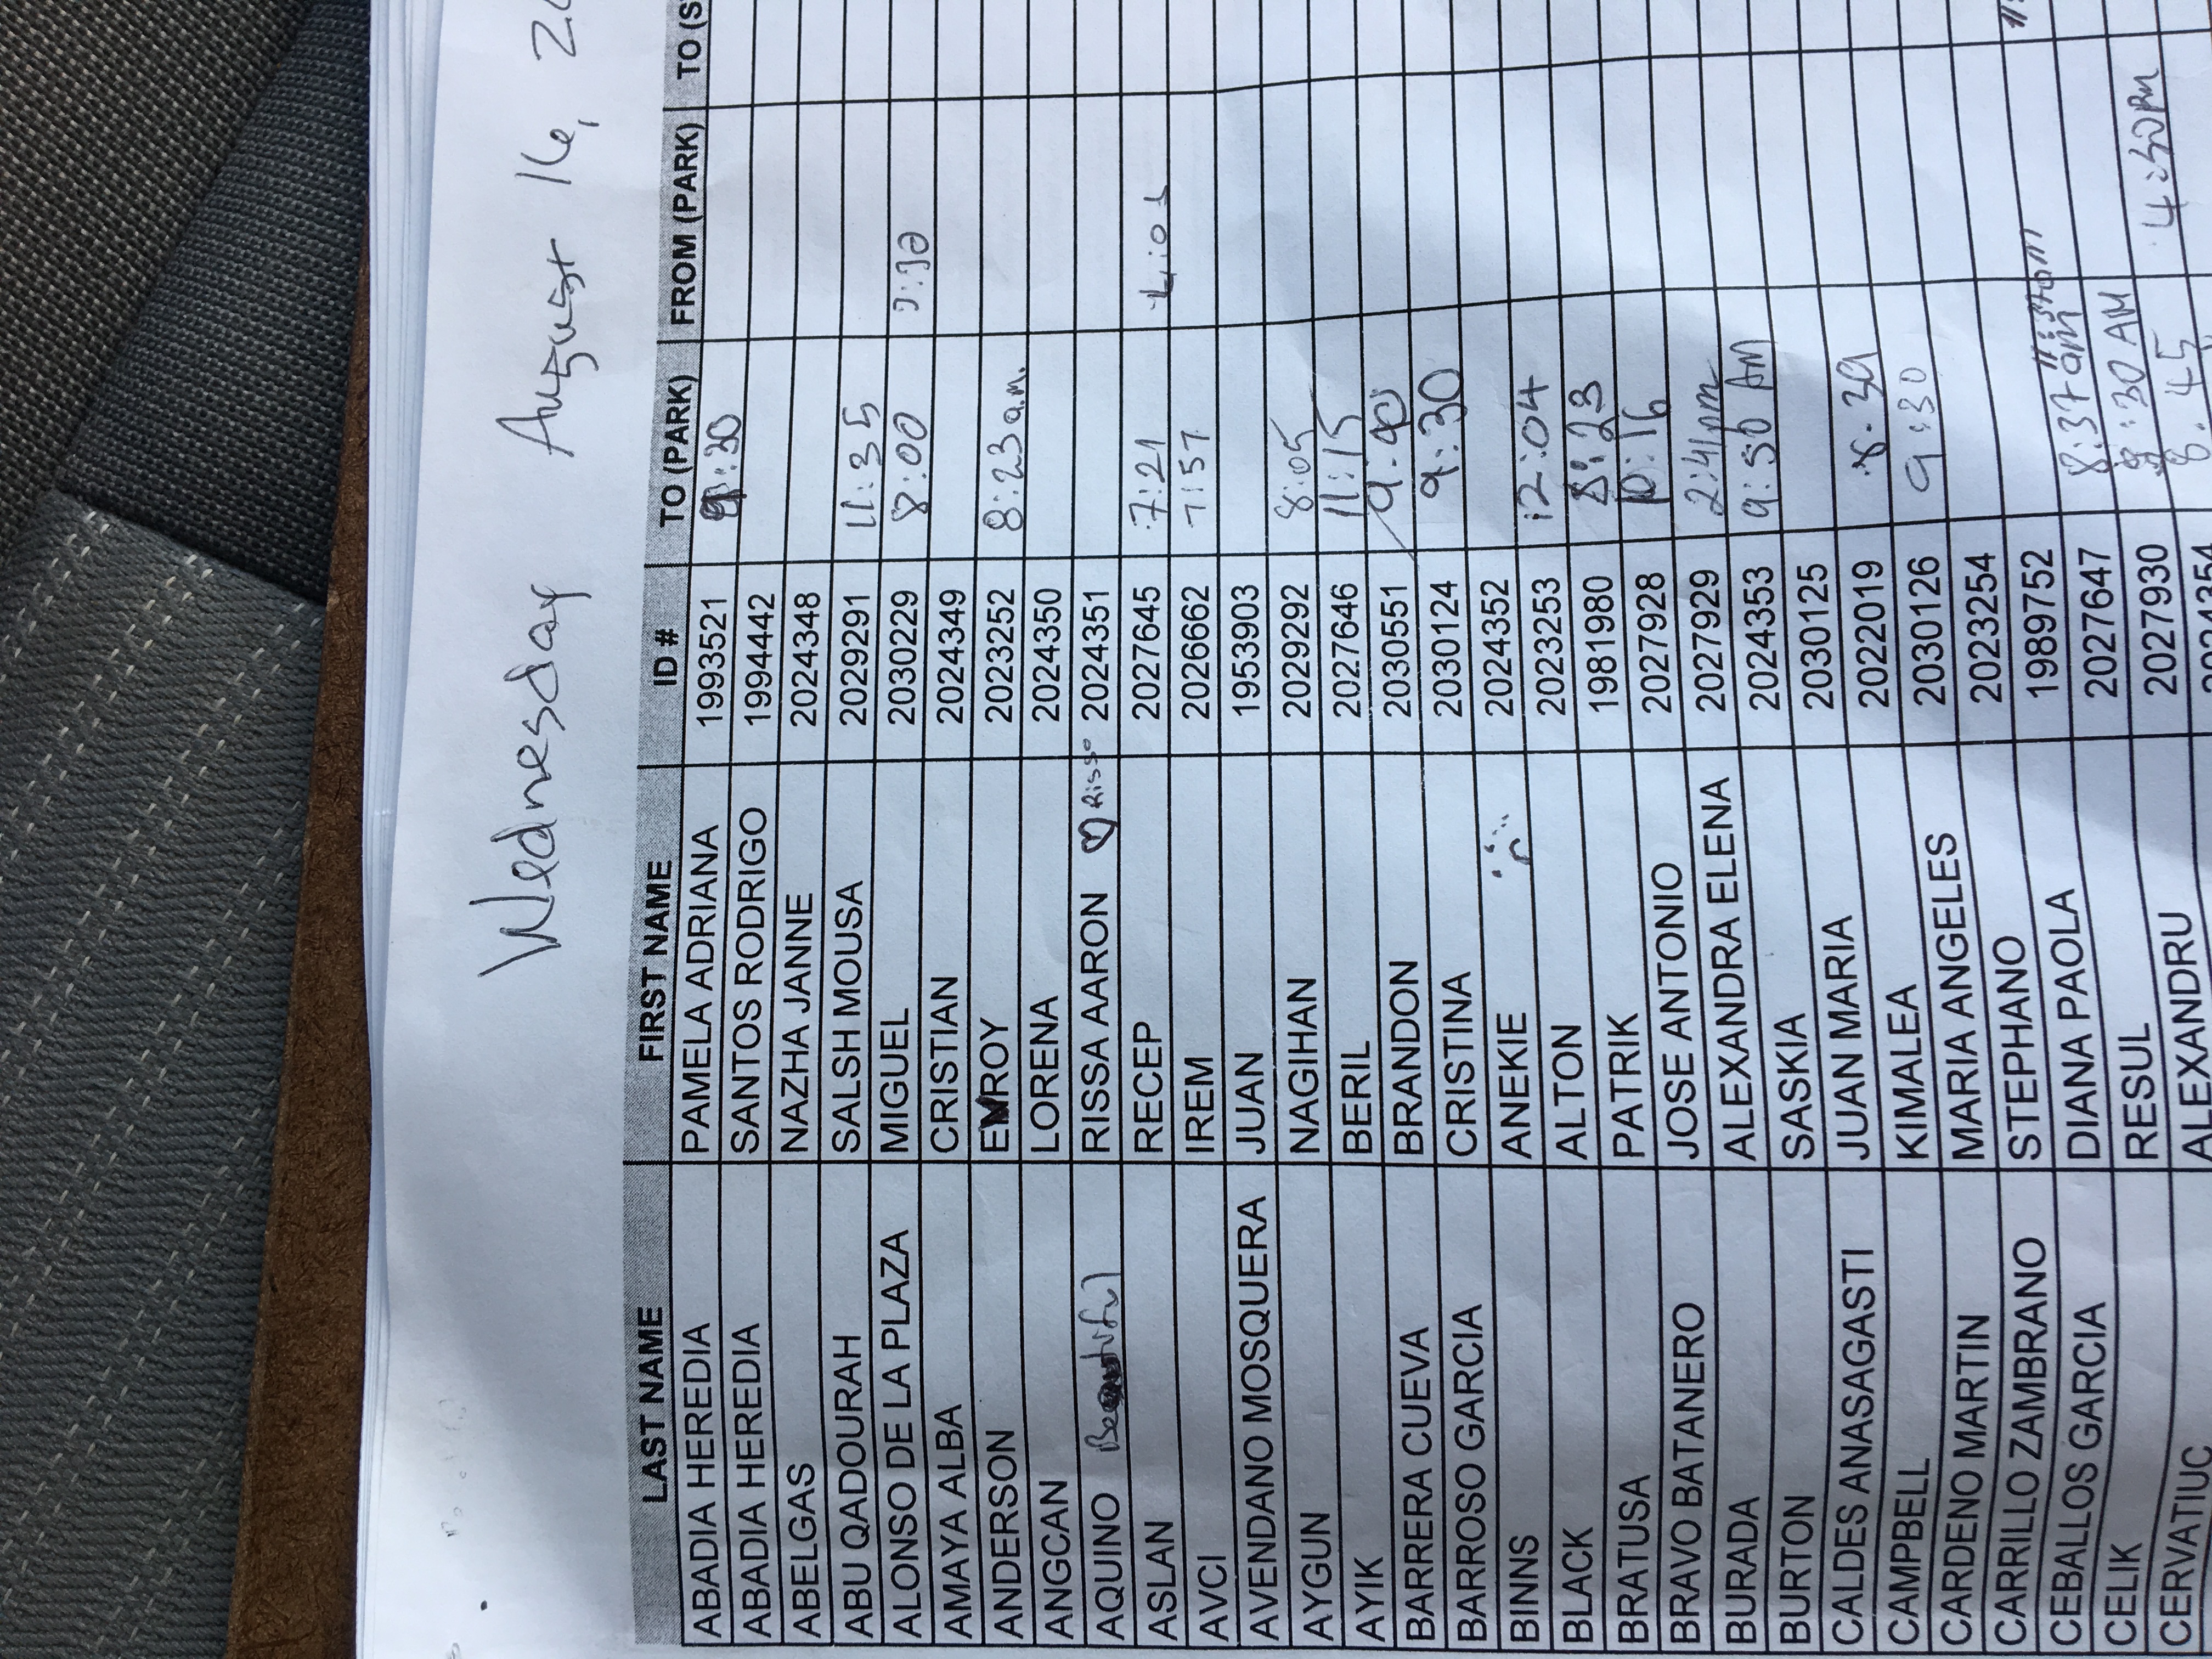 Wednesday August 16, 20
LAST NAME FIRST NAME ID # TO (PARK) FROM (PARK) TO (S
ABADIA HEREDIA PAMELA ADRIANA 1993521 :30
ABADIA HEREDIA SANTOS RODRIGO 1994442
ABELGAS NAZHA JANNE 2024348
ABU QADOURAH SALSH MOUSA 2029291 11:35
ALONSO DE LA PLAZA MIGUEL 2030229 8:00
AMAYA ALBA CRISTIAN 2024349
ANDERSON ROY 2023252 8:23 a.m.
ANGCAN LORENA 2024350
AQUINO Beautiful RISSA AARON ♡ Rissa 2024351
ASLAN RECEP 2027645 7:21
AVCI IREM 2026662 7:57
AVENDANO MOSQUERA JUAN 1953903
AYGUN NAGIHAN 2029292 8:05
AYIK BERIL 2027646 11:15
BARRERA CUEVA BRANDON 2030551 9:40
BARROSO GARCIA CRISTINA 2030124 9:30
BINNS ANEKIE 2024352
BLACK ALTON 2023253 12:04
BRATUSA PATRIK 1981980 8:23
BRAVO BATANERO JOSE ANTONIO 2027928 10:16
BURADA ALEXANDRA ELENA 2027929 2:41pm
BURTON SASKIA 2024353 9:50 AM
CALDES ANASAGASTI JUAN MARIA 2030125
CAMPBELL KIMALEA 2022019
CARDENO MARTIN MARIA ANGELES 2030126 9:30
CARRILLO ZAMBRANO STEPHANO 2023254
CEBALLOS GARCIA DIANA PAOLA 1989752 11:37am 11:
CELIK RESUL 2027647 8:37 am
CERVATIUC ALEXANDRU 2027930 8:30 AM
2024354 8.45 4:30PM